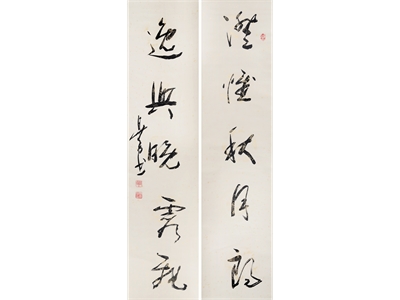 澄懷秋月朗
逸興晚霞飛